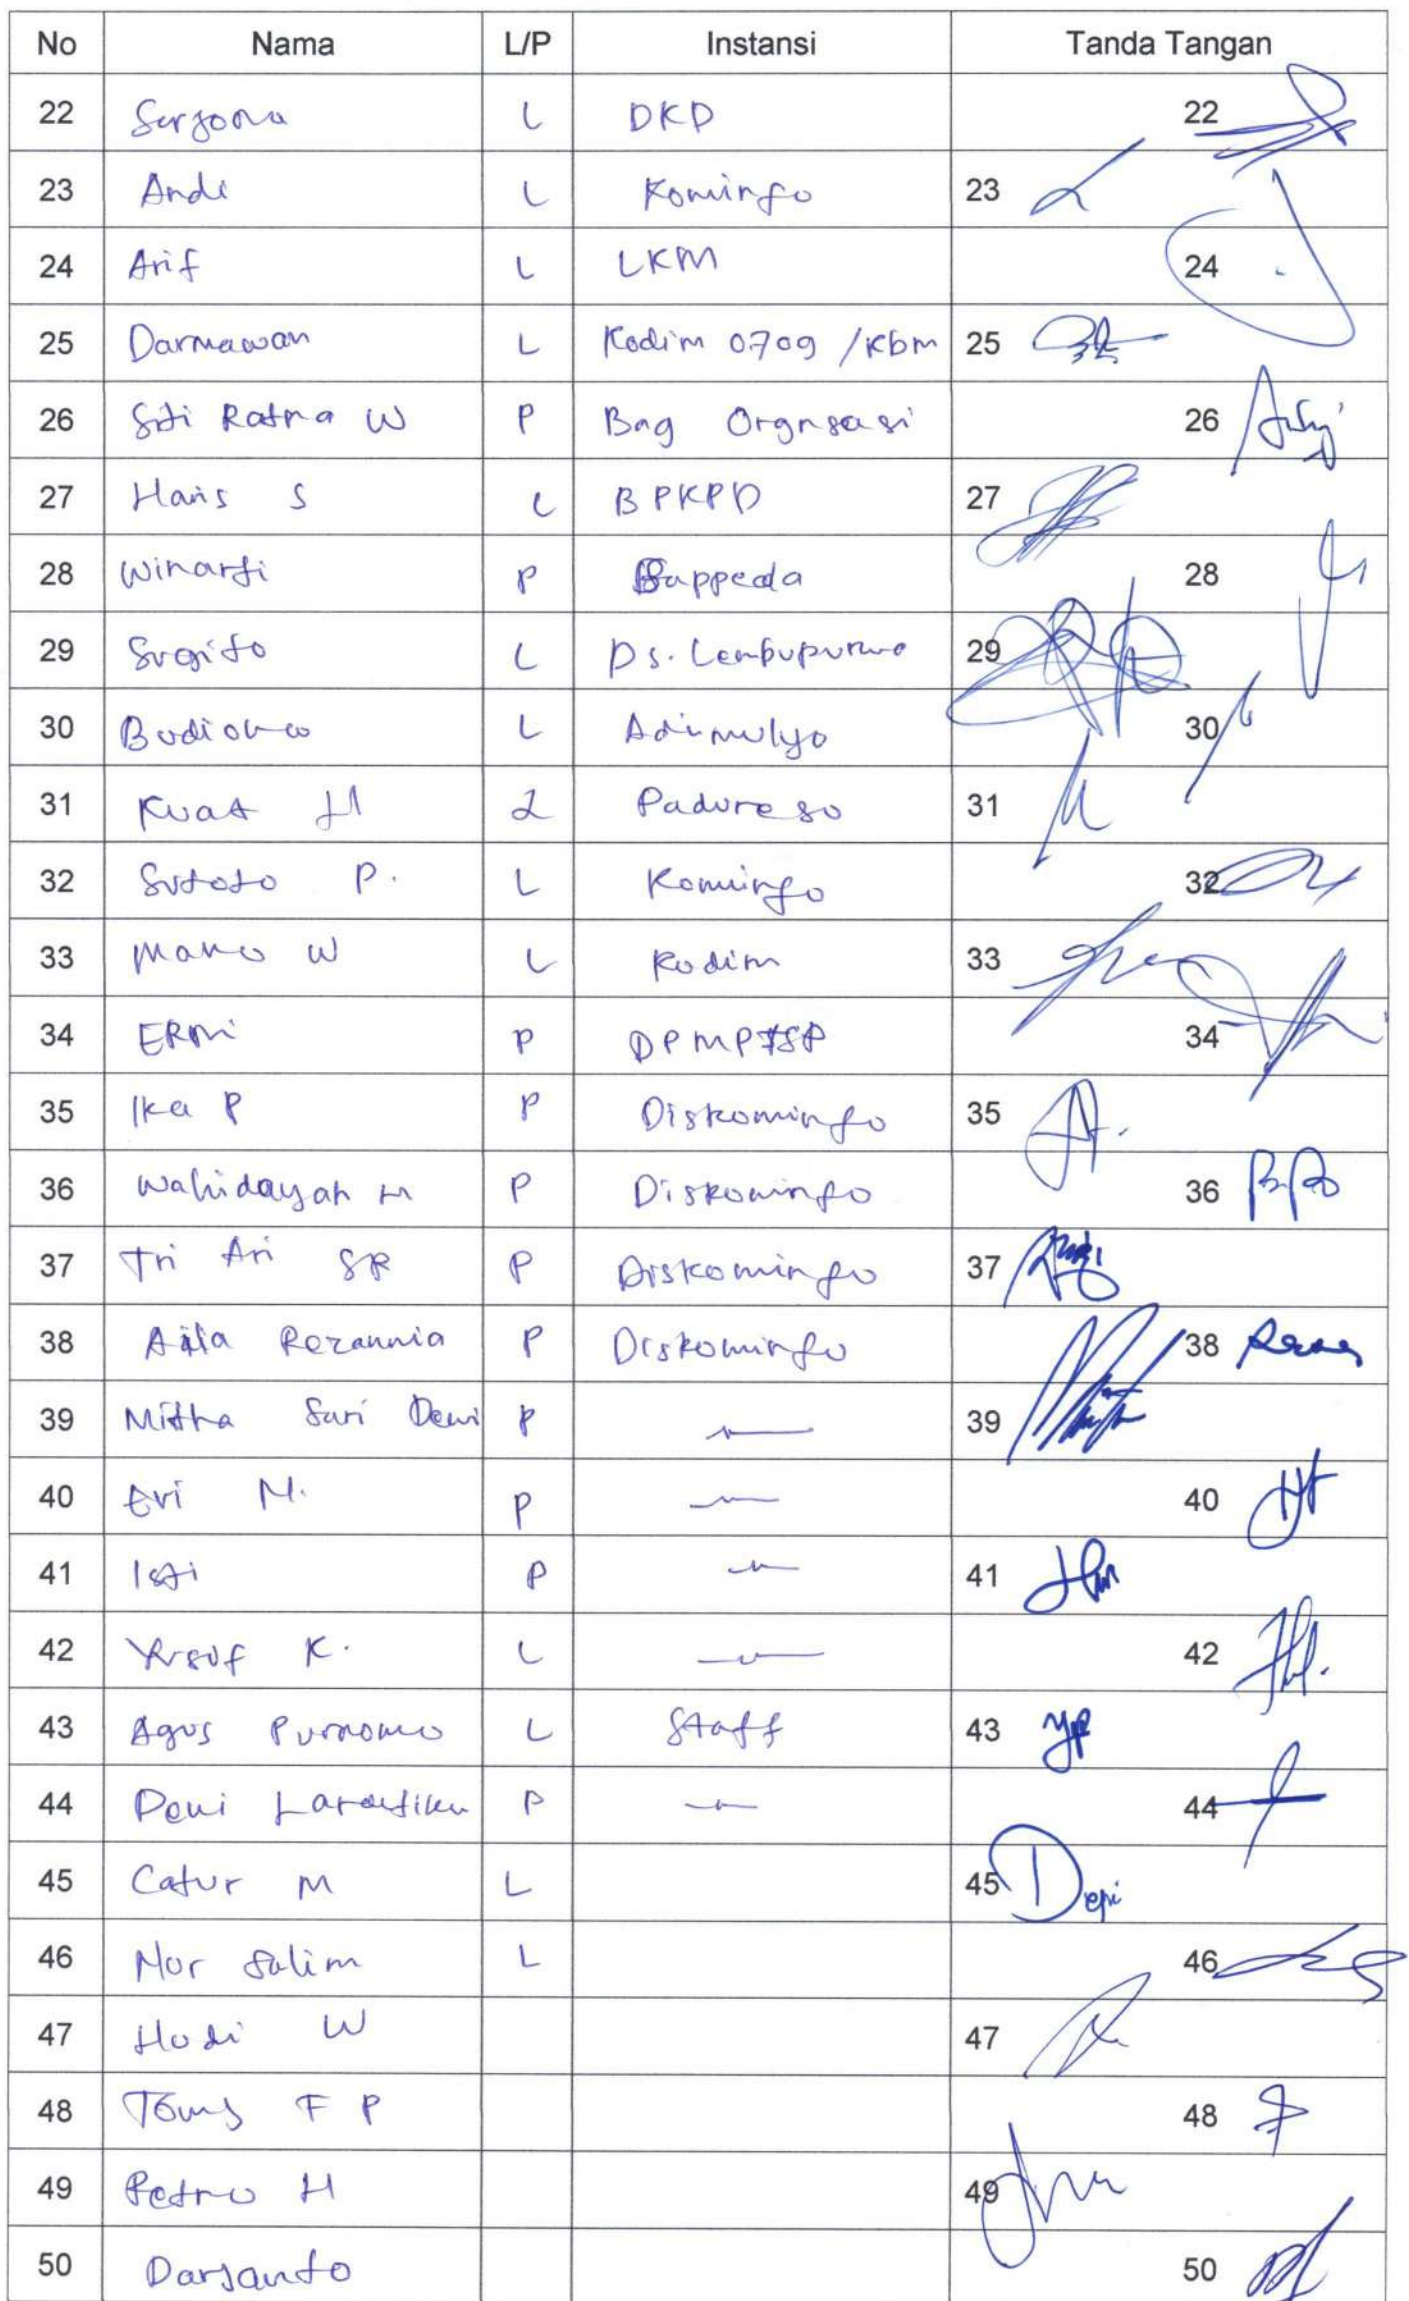 No Nama L/P Instansi Tanda Tangan
22 Surjono L DKD 22
23 Andi L Kominfo 23
24 Arif L LKM 24
25 Darmawan L Kodim 0709 /Kbm 25
26 Siti Ratna W P Bag Orgnsasi 26
27 Haris S L BPKPD 27
28 Winarti P Bappeda 28
29 Sugito L Ds. Lembupurwo 29
30 Budiono L Adimulyo 30
31 Kuat H L Padureso 31
32 Sutoto P. L Kominfo 32
33 W L Kodim 33
34 ERNI P DPMPTSP 34
35 Ika P P Diskominfo 35
36 Wahidayah P Diskominfo 36
37 Tri Ari SR P Diskominfo 37
38 Rezannia P Diskominfo 38
39 Mitha Sari Dewi P 39
40 Evi M. P 40
41 Isti P 41
42 Yusuf K. L 42
43 Agus Purnomo L Staff 43
44 Dewi P 44
45 Catur M L 45 Depi
46 Nur Salim L 46
47 Hadi W 47
48 F P 48
49 Petru H 49
50 Darjanto 50